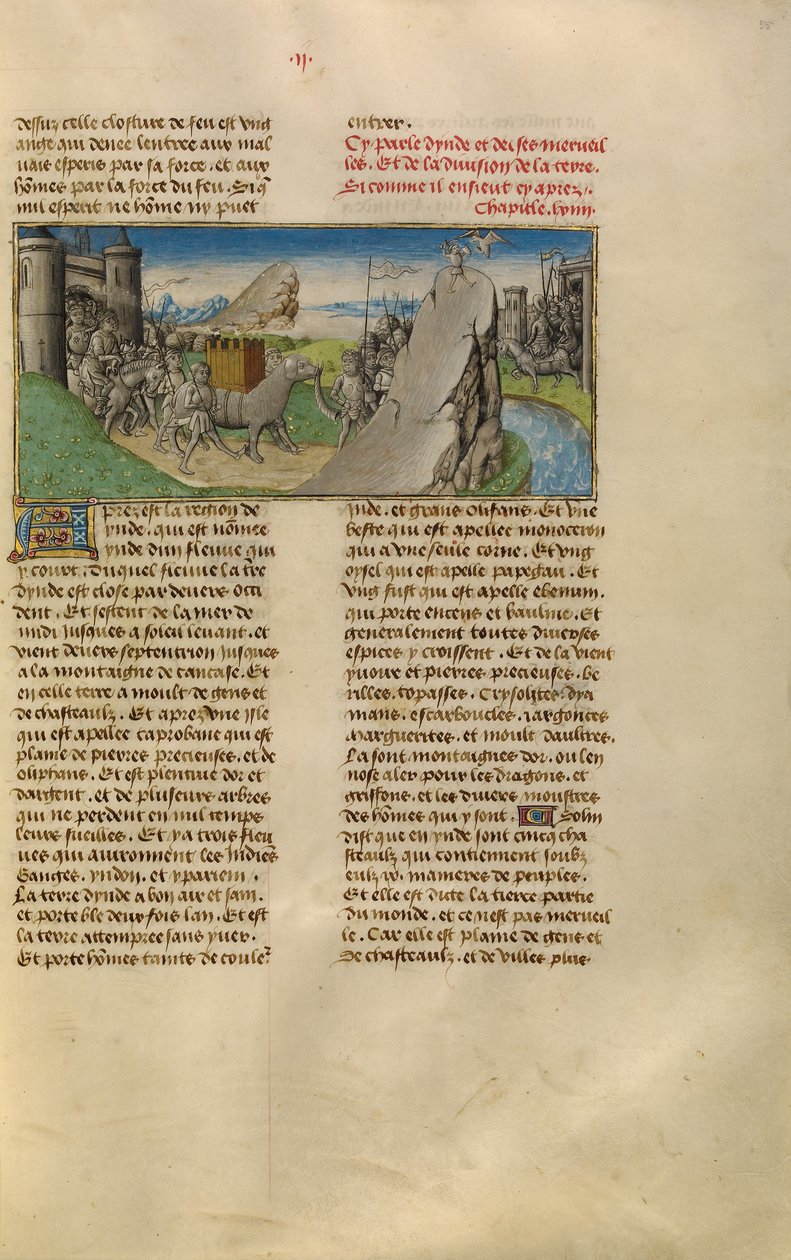 .II.
55
dessuz celle closture de feu est vng
ange qui denee lentree aux mal
uais esperis par sa force. et aux
hōmes par la force du feu. Si q̄
nul esperit ne hōme ny puet
entrer.
Cy parle dynde et de ses merueil
les. Et de la diuision de la terre.
Si comme il ensieut cy aprez.
Chapitle. lxiiii.
Aprez est la region de
ynde. qui est nōmee
ynde dun fleuue qui
y court. Duquel fleuue la tr̄e
dynde est close par deuers occi
dent. Et sestent de la mer de
midi jusques a soleil leuant. et
vient deuers septentrion jusques
a la montaigne de caucase. Et
en celle terre a moult de gens et
de chasteaulz. Et aprez vne isle
qui est apellee caprobane qui est
plaine de pierres precieuses. et de
oliphans. Et est plentiue dor et
dargent. et de pluseurs arbres
qui ne perdent en nul temps
leurs fueilles. Et y a trois fleu
ues qui auironnent les Indiēs
Ganges. yndon. et ypariem.
La terre dynde a bon air et sain.
et porte ble deux fois lan. Et est
la terre attempree sans yuer.
Et porte hōmes tains de couler̄
Inde. et grans olifans. Et vne
beste qui est apellee monoceron
qui a vne seule corne. Et vng
oysel qui est apelle papegau. Et
vng fust qui est apelle ebenum.
qui porte encens et baulme. Et
generalement toutes diuerses
espices y croissent. Et de la vient
yuoire et pierres precieuses. be
rilles. topasses. Crysolites. dya
mans. escarboucles. iargonces
Marguerites. et moult daultres.
La sont montaignes dor. ou len
nose aler pour les dragons. et
griffons. et les diuers monstres
des hōmes qui y sont. Solin
dist que en ynde sont cincq cha
steaulz qui contiennent soubz
eulz ix. manieres de peuples.
Et elle est dicte la tierce partie
du monde. et ce nest pas merueil
le. Car elle est plaine de gens et
de chasteaulz. et de villes plus